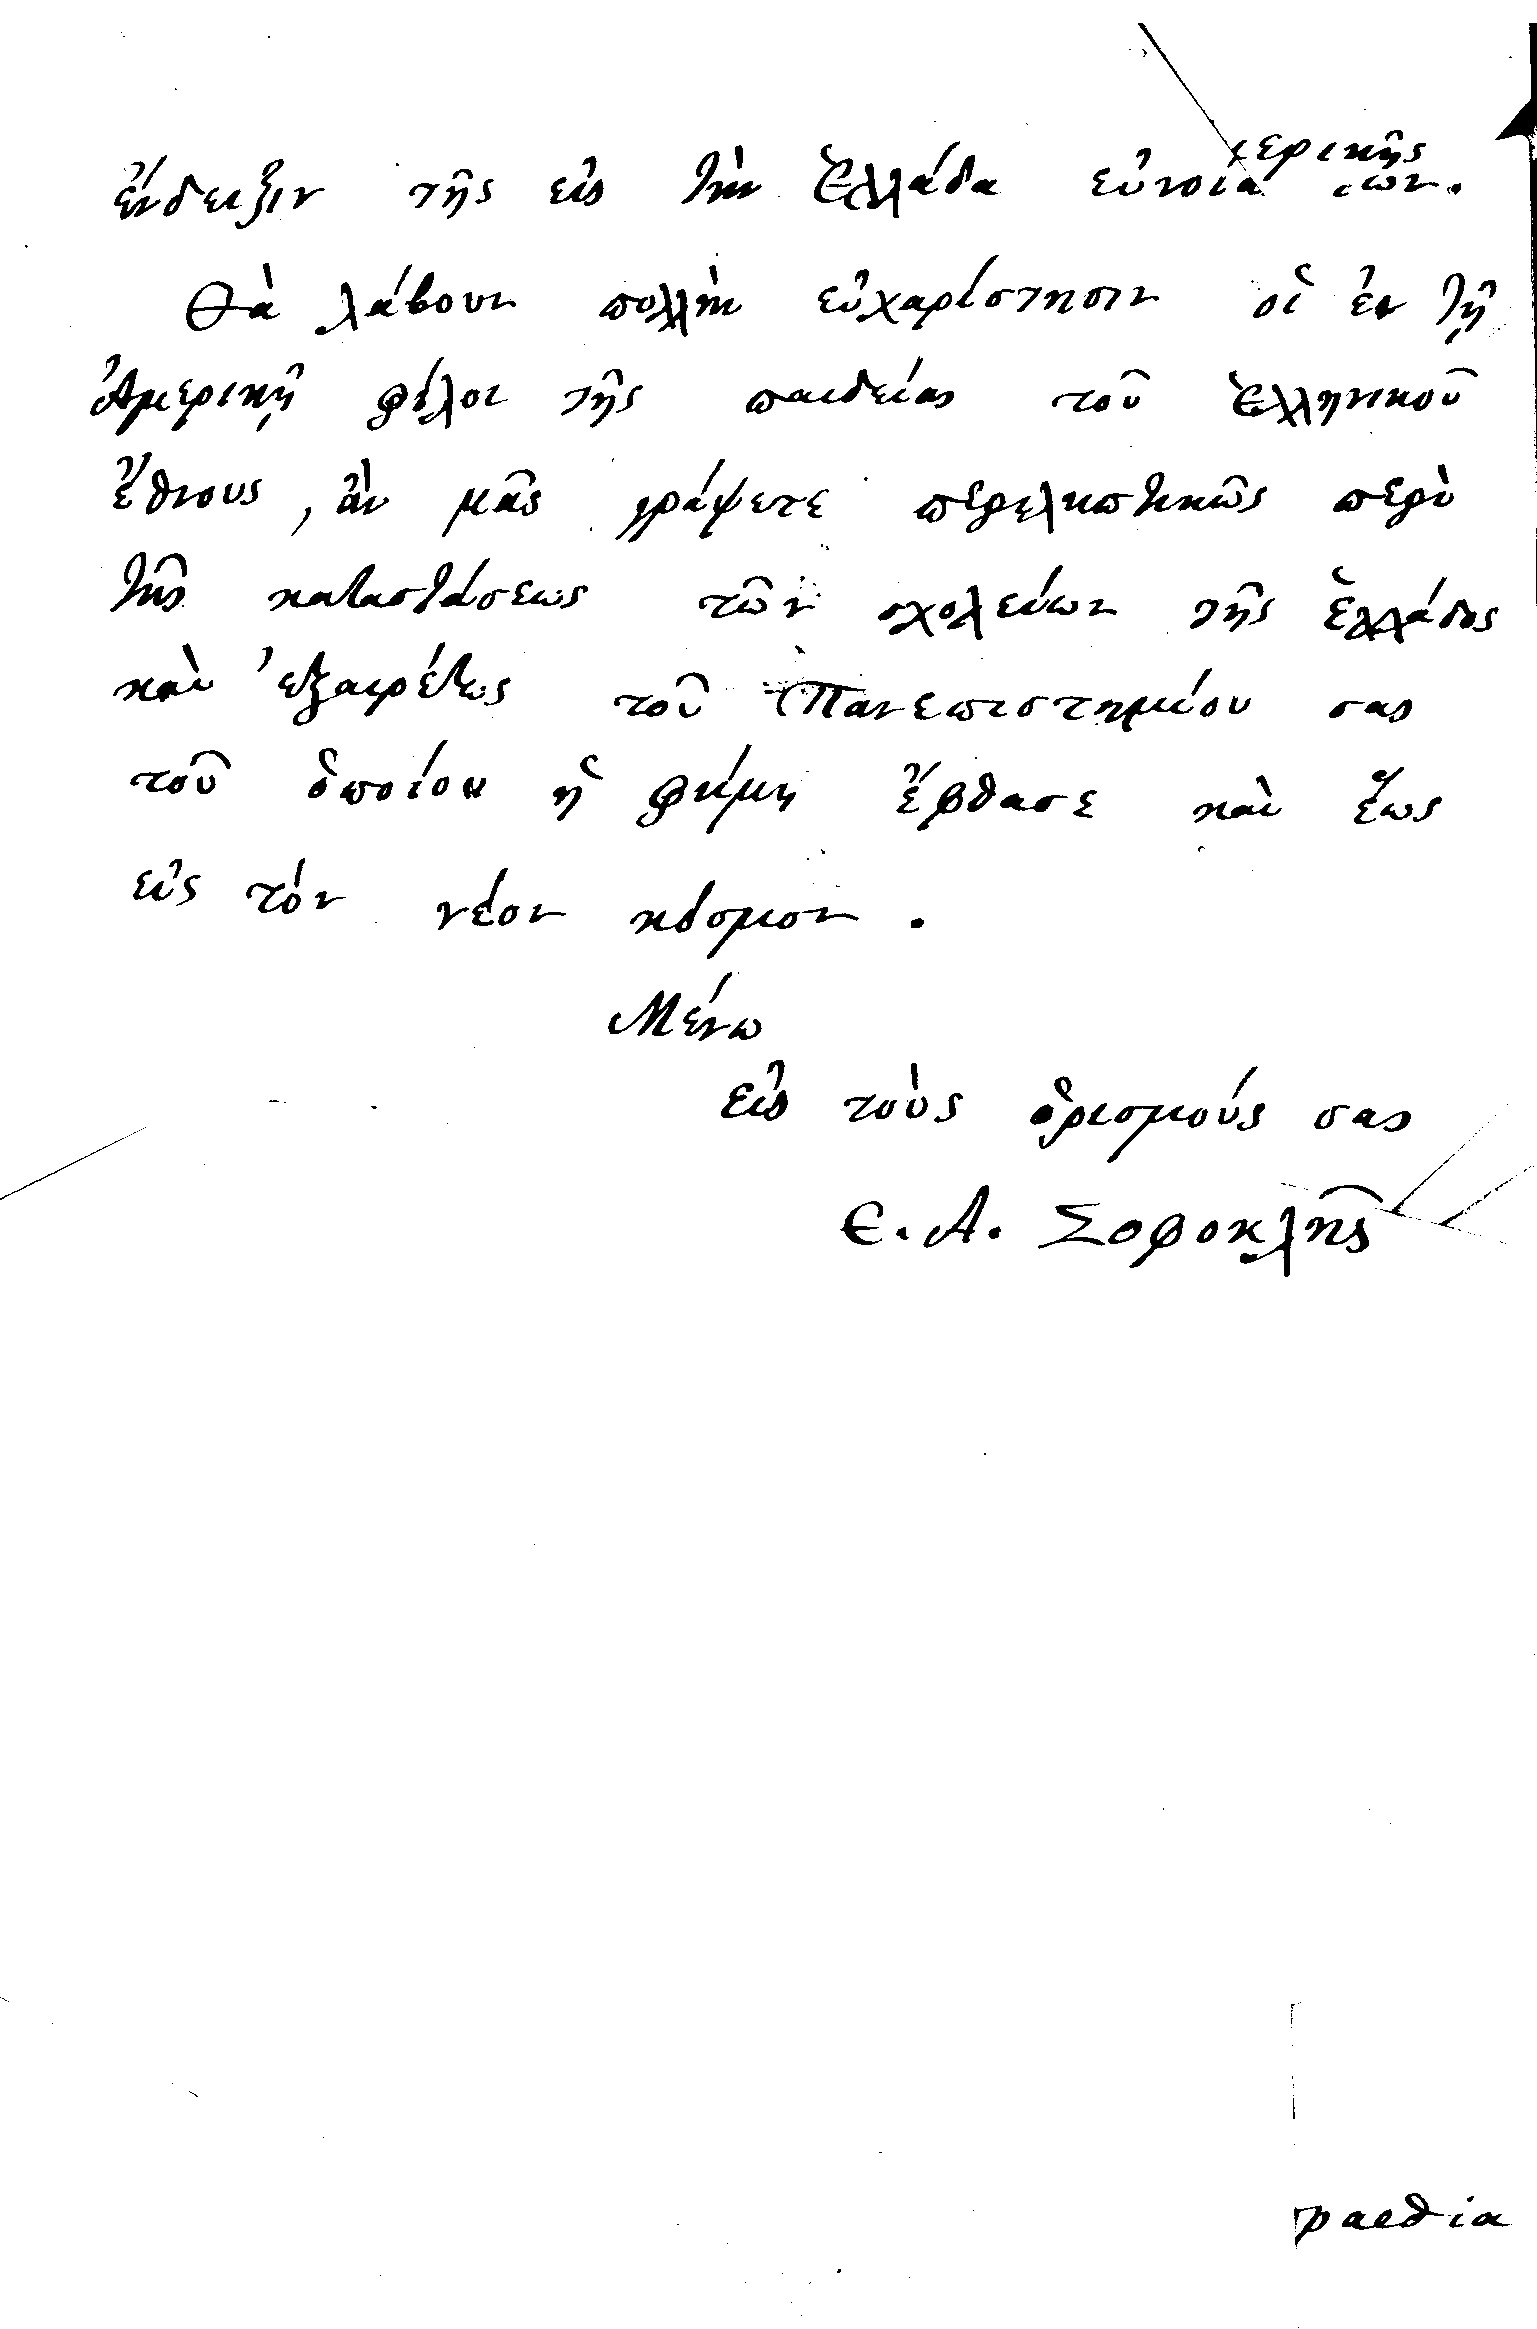 ἔνδειξιν τῆς εἰς τὴν Ἑλλάδα εὐνοία
Θὰ λάβουν πολλὴν εὐχαρίστησιν οἱ ἐν τῇ
Ἀμερικῇ φίλοι τῆς παιδείας τοῦ Ἑλληνικοῦ
ἔθνους, ἂν μᾶς γράψετε περιληπτικῶς περὶ
τῆς καταστάσεως τῶν σχολείων τῆς Ἑλλάδος
καὶ ἐξαιρέτως τοῦ Πανεπιστημίου σας
τοῦ ὁποίου ἡ φήμη ἔφθασε καὶ ἕως
εἰς τὸν νέον κόσμον.
Μένω
εἰς τοὺς ὁρισμούς σας
Ε. Α. Σοφοκλῆς
paedia